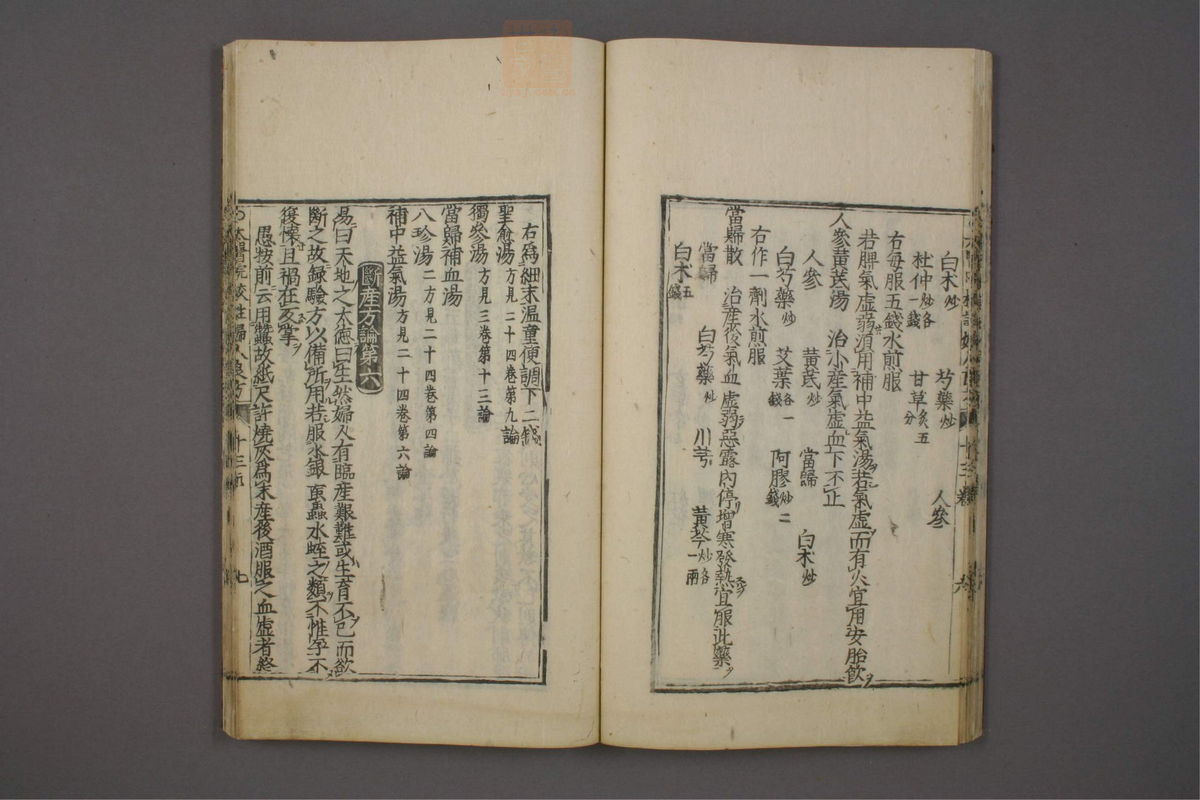 白朮炒 芍藥炒 人參
杜仲炒各一錢 甘草炙五分
右每服五錢水煎服
若脾氣虛弱須用補中益氣湯若氣虛而有火宜用安胎飲
人參黃芪湯 治小產氣虛血下不止
人參 黃芪炒 當歸 白朮炒
白芍藥炒 艾葉各一錢 阿膠炒二錢
右作一劑水煎服
當歸散 治產後氣血虛弱惡露內停增寒發熱宜服此藥
當歸 白芍藥炒 川芎 黃芩炒各一兩
白朮五錢
右爲細末溫童便調下二錢
聖愈湯方見二十四卷第九論
獨參湯方見三卷第十三論
當歸補血湯
八珍湯二方見二十四卷第四論
補中益氣湯方見二十四卷第六論
斷產方論第六
易曰天地之大德曰生然婦人有臨產艱難或生育不已而欲
斷之故錄驗方以備所用若服水銀䖟蟲水蛭之類不惟孕不
復懷且禍在反掌
愚按前云用蠶故紙尺許燒灰爲末產後酒服之血虛者終